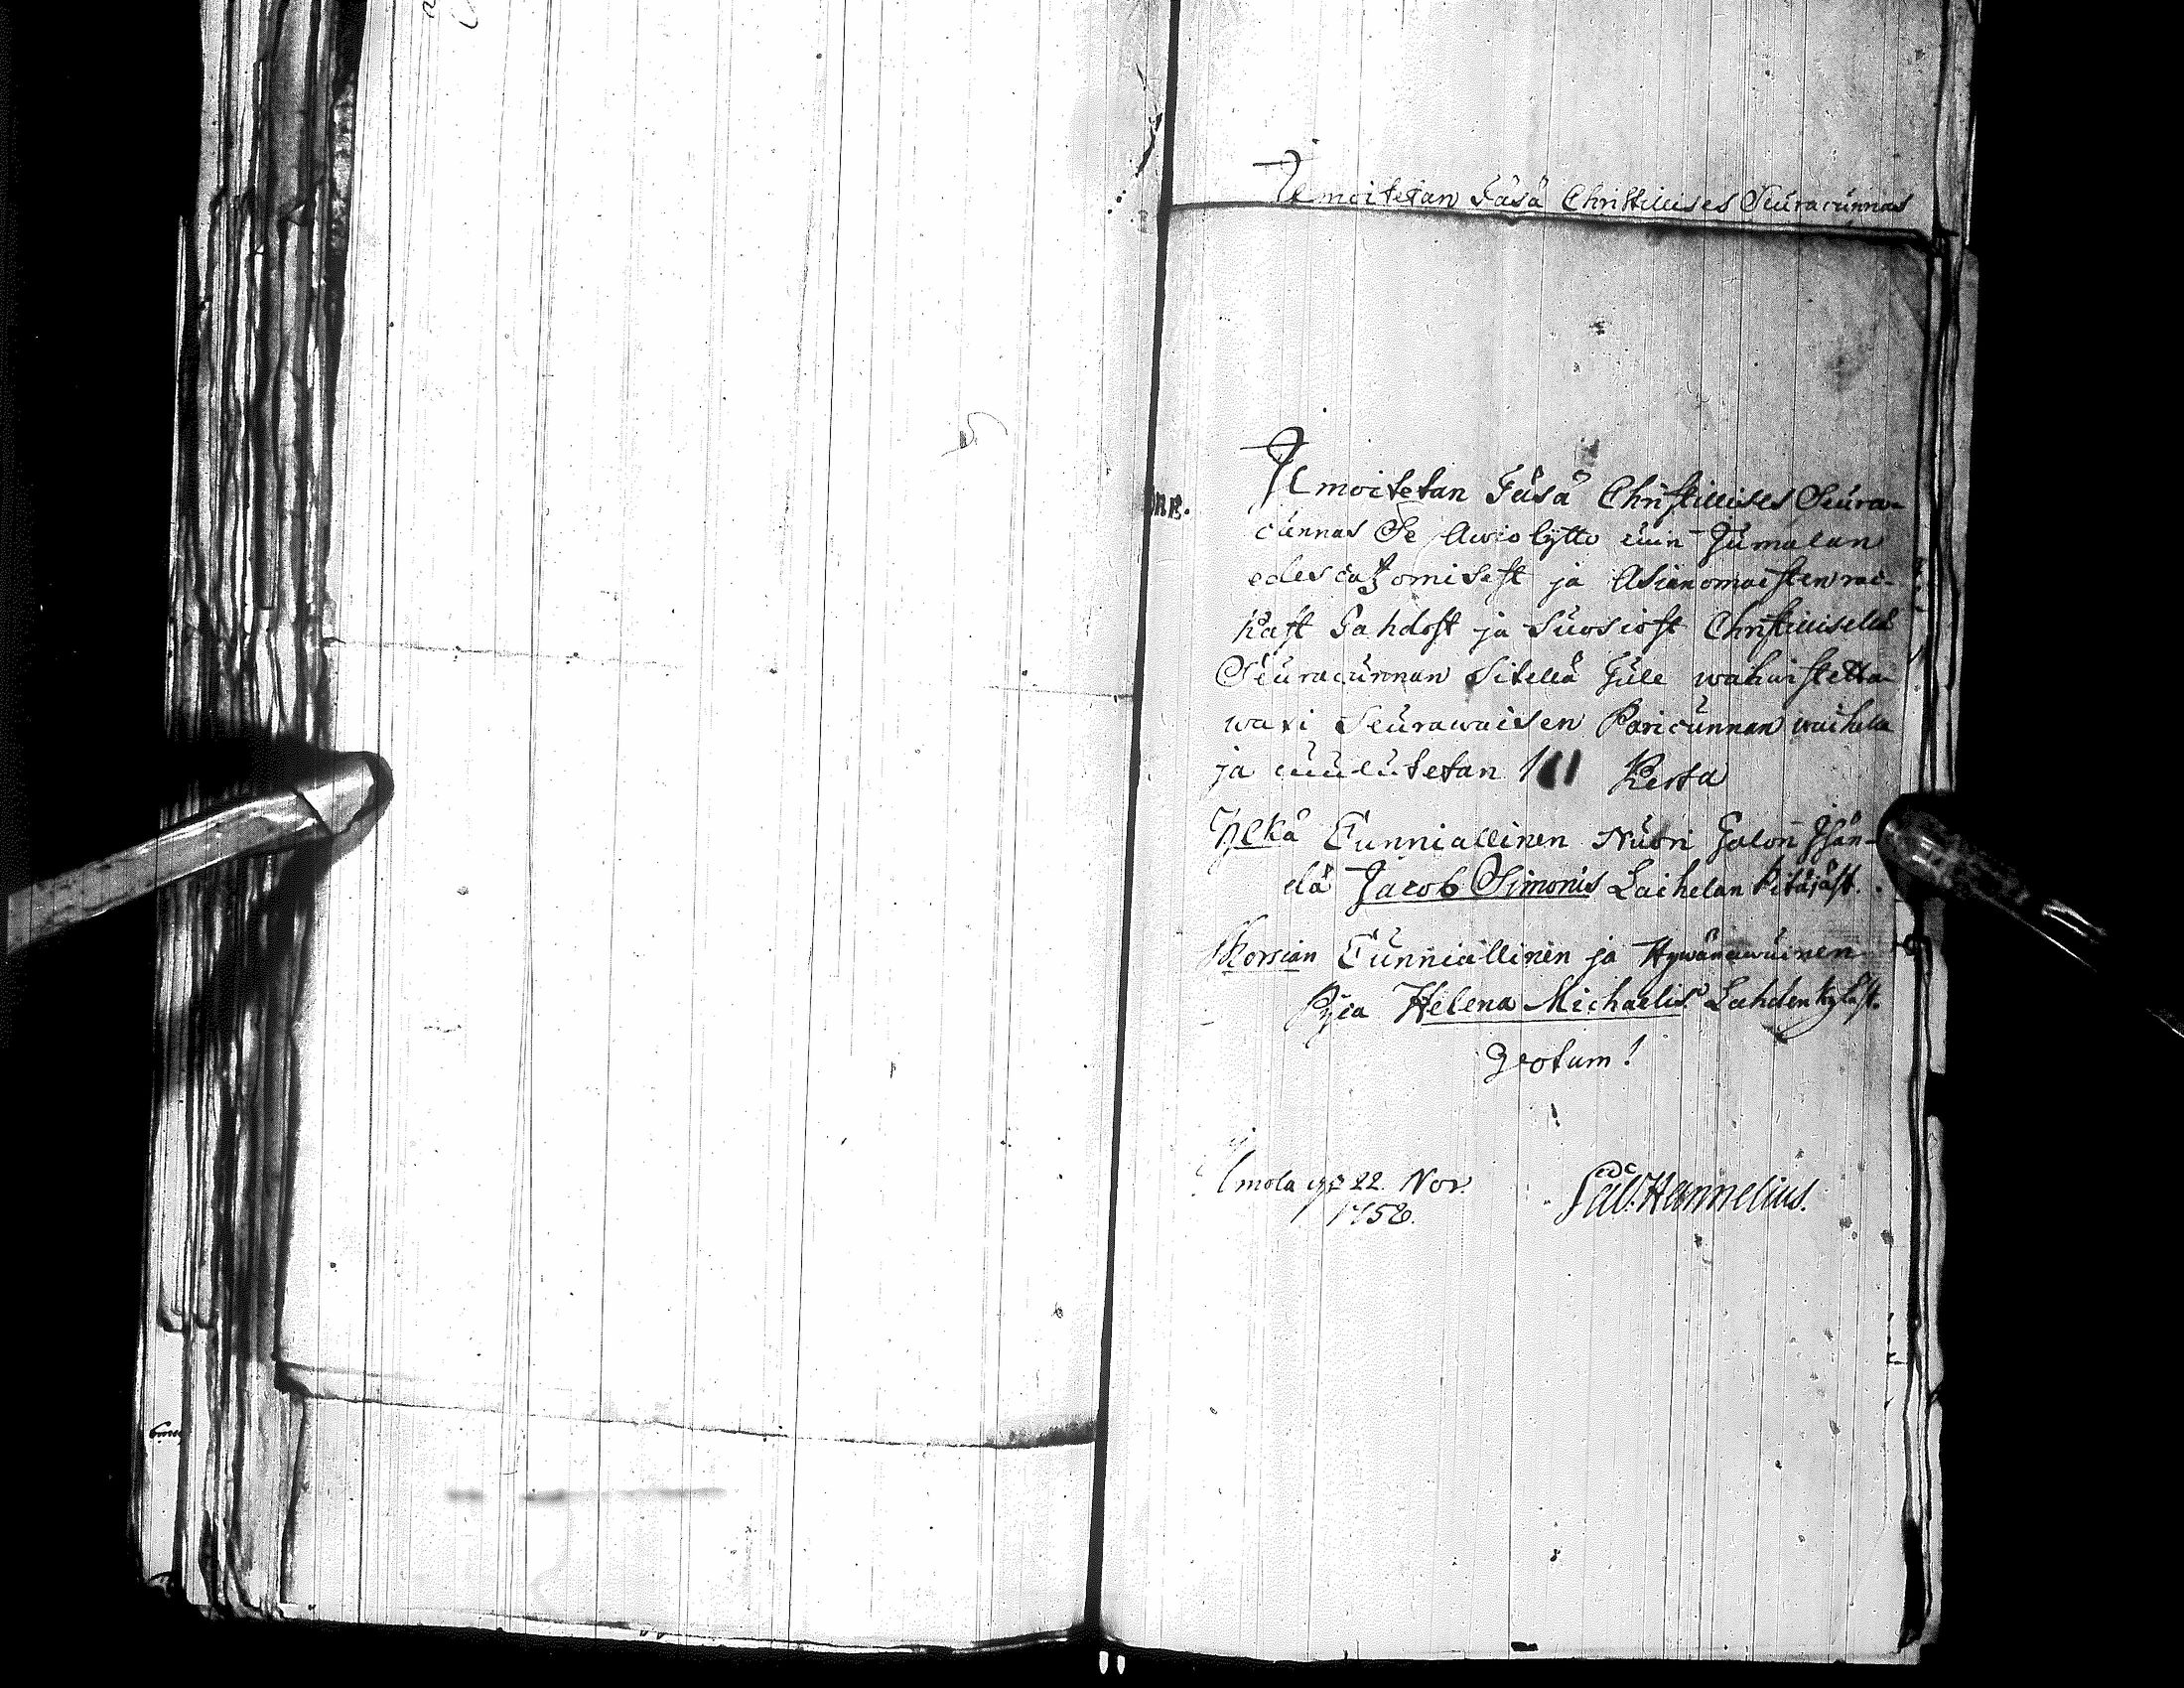 Ilmoitetan Täsä Christillises Seuracunnas
Ilmoitetan Täsä Christillises Seura-
cunnas Se Awiokytto cuin Jumalan
edescatzomisest ja Asianomaisten rac-
kast Tahdost ja Suosiost Christilliselä
Seuracunnan Sitellä Tule wahwistetta-
waxi Seurawaisen Paricunnan waihella
ja cuulutetan 1 Kerta
Yljkä Cunniallinen Nuori Talon Isän-
dä Jacob Simonis Laihelan Pitäjäst.
Morsian Cunniallinen ja Hywänäwuinen
Pyca Helena Michaelis Lahden kyläst.
Notum!
Ilmola 22. Nov.
1756.
Hannelius.